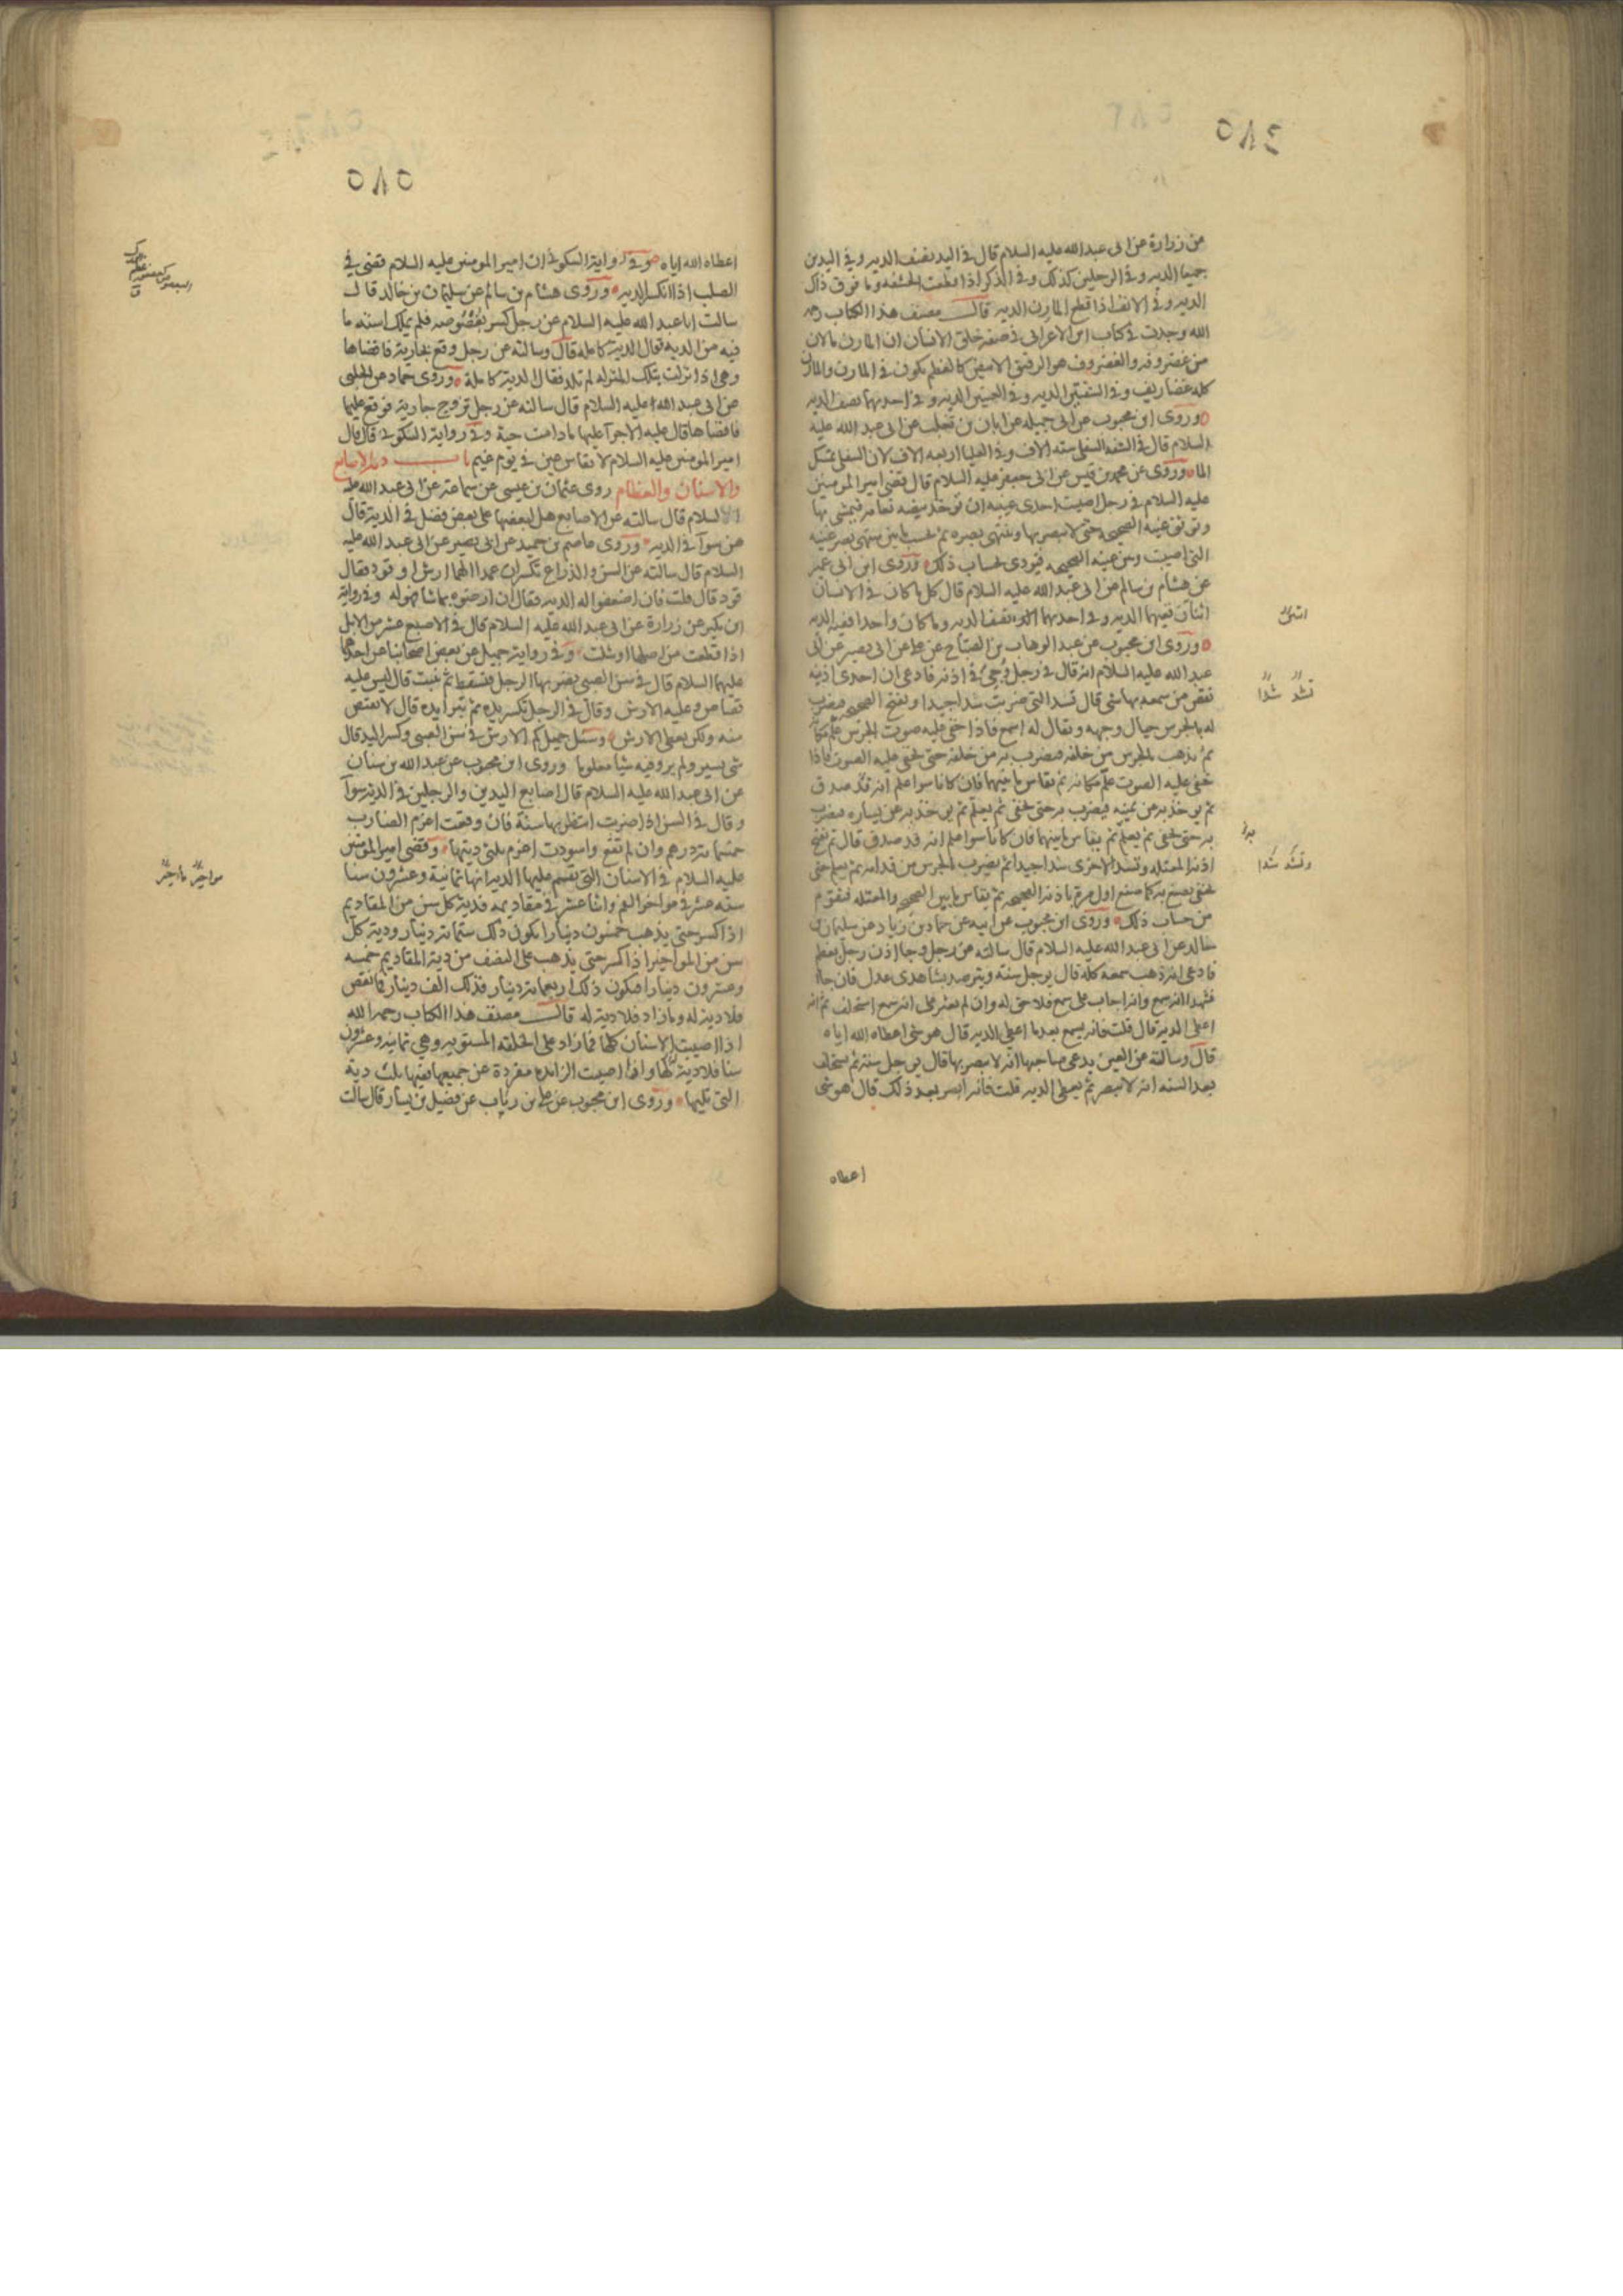 ٥٨٤
من زرارة عن ابى عبد الله عليه السلام قال فى اليد نصف الدية وفى اليدين
جميعا الدية وفى الرجلين كذلك وفى الذكر اذا قطعت الحشفة وما فوق ذلك
الدية وفى الانف اذا قطع المارن الدية قال مصنف هذا الكتاب رحمه
الله وجدت فى كتاب ابن الاعرابى فى صفة خلق الانسان ان المارن ما لان
من غضروفه والغضروف هو الرقيق الابيض كالعظم يكون فى المارن والمارن
كله غضاريف وفى الشفتين الدية وفى احديهما نصف الدية
وروى ابن محبوب عن ابى جميلة عن ابان بن تغلب عن ابى عبد الله عليه
السلام قال فى الشفة السفلى ستة الاف وفى العليا اربعة الاف لان السفلى تمسك
الماء وروى عن محمد بن قيس عن ابى جعفر عليه السلام قال قضى امير المومنين
عليه السلام فى رجل اصيبت احدى عينيه ان تؤخذ بيضة نعامة فيمشى بها
وتوثق عينه الصحيحة حتى لا يبصر بها وينتهى بصره ثم يحسب ما بين منتهى بصر عينه
التى اصيبت ومن عينه الصحيحة فيودى بحساب ذلك وروى ابن ابى عمير
عن هشام بن سالم عن ابى عبد الله عليه السلام قال كل ما كان فى الانسان
اثنان ففيهما الدية وفى احدهما نصف الدية وما كان واحدا ففيه الدية
وروى ابن محبوب عن عبد الوهاب بن الصباح عن على عن ابى بصير عن ابى
عبد الله عليه السلام انه قال فى رجل وجئ فى اذنه فادعى ان احدى اذنيه
نقص من سمعها شى قال تسد التى ضربت سدا جيدا وتفتح الصحيحة فيضرب
له بالجرس حيال وجهه ويقال له اسمع فاذا خفى عليه صوت الجرس علم مكانه
ثم يذهب بالجرس من خلفه فيضرب به من خلفه حتى يخفى عليه الصوت فاذا
خفى عليه الصوت علم مكانه ثم يقاس ما بينهما فان كانا سوا علم انه قد صدق
ثم يوخذ به عن يمينه فيضرب به حتى يخفى ثم يعلم ثم يوخذ به عن يساره فيضرب
به حتى يخفى ثم يعلم ثم يقاس ما بينهما فان كانا سوا علم انه قد صدق قال ثم تفتح
اذنه المعتلة وتسد الاخرى سدا جيدا ثم يضرب بالجرس من قدامه ثم يعلم حتى
يخفى يصنع به كما صنع اول مرة باذنه الصحيحة ثم يقاس ما بين الصحيحة والمعتلة فيقوم
من حساب ذلك وروى ابن محبوب عن ابيه عن حماد بن زياد عن سليمان بن
خالد عن ابى عبد الله عليه السلام قال سالته عن رجل وجا اذن رجل بعظم
فادعى انه ذهب سمعه كله قال يوجل سنة ويترصد بشاهدى عدل فان جاا
فشهدا انه سمع وانه اجاب على سمع فلا حق له وان لم يعثر على انه سمع استحلف ثم انه
اعطى الدية قال قلت فانه يسمع بعد ما اعطى الدية قال هو شى اعطاه الله اياه
قال وسالته عن العين يدعى صاحبها انه لا يبصر بها قال يوجل سنة ثم يستحلف
بعد السنة انه لا يبصر ثم يعطى الدية قلت فانه ابصر بعد ذلك قال هو شى
اعطاه
تشد شدا
وتشد شدا
٥٨٥
اعطاه الله اياه وفى رواية السكونى ان امير المومنين عليه السلام قضى فى
الصلب اذا انكسر الدية وروى هشام بن سالم عن سليمان بن خالد قال
سالت ابا عبد الله عليه السلام عن رجل كسر بعصوصه فلم يملك استه ما
فيه من الدية فقال الدية كاملة قال وسالته عن رجل وقع بجارية فافضاها
وهى اذا نزلت بتلك المنزلة لم تلد فقال الدية كاملة وروى حماد عن الحلبى
عن ابى عبد الله عليه السلام قال سالته عن رجل تزوج جارية فوقع عليها
فافضاها قال عليه الاجراء عليها مادامت حية وفى رواية السكونى قال قال
امير المومنين عليه السلام لا تقاس عين فى يوم غيم باب دية الاصابع
والاسنان والعظام روى عثمان بن عيسى عن سماعة عن ابى عبد الله عليه
السلام قال سالته عن الاصابع هل لبعضها على بعض فضل فى الدية قال
هن سوآ فى الدية وروى عاصم بن حميد عن ابى بصير عن ابى عبد الله عليه
السلام قال سالته عن السن والذراع تكسران عمدا الهما ارش او قود فقال
قود قال قلت فان اضعفوا له الدية فقال ان ارضوه بما شا فهو له وفى رواية
ابن بكير عن زرارة عن ابى عبد الله عليه السلام قال فى الاصبع عشر من الابل
اذا قطعت من اصلها او شلت وفى رواية جميل عن بعض اصحابنا عن احدهما
عليهما السلام قال فى سن الصبى يضربها الرجل فتسقط ثم تنبت قال ليس عليه
قصاص وعليه الارش وقال فى الرجل تكسر يده ثم تبرأ يده قال لا يقتص
منه ولكن يعطى الارش وسئل جميل كم الارش فى سن الصبى وكسر اليد قال
شى يسير ولم يرو فيه شيا معلوما وروى ابن محبوب عن عبد الله بن سنان
عن ابى عبد الله عليه السلام قال اصابع اليدين والرجلين فى الدية سوآ
وقال فى السن اذا ضربت انتظر بها سنة فان وقعت اغرم الضارب
خمسمائة درهم وان لم تقع واسودت اغرم ثلثى ديتها وقضى امير المومنين
عليه السلام فى الاسنان التى تقسم عليها الدية انها ثمانية وعشرون سنا
ستة عشر فى مواخير الفم واثنا عشر فى مقاديمه فدية كل سن من المقاديم
اذا كسر حتى يذهب خمسون دينارا يكون ذلك ستمائة دينار ودية كل
سن من المواخير اذا كسر حتى يذهب على النصف من دية المقاديم خمسة
وعشرون دينارا فيكون ذلك اربعمائة دينار فذلك الف دينار فما نقص
فلا دية له وما زاد فلا دية له قال مصنف هذا الكتاب رحمه الله
اذا اصيبت الاسنان كلها فما زاد على الخلقة المستوية وهى ثمانية وعشرون
سنا فلا دية لها واذا اصيبت الزائدة مفردة عن جميعها ففيها ثلث دية
التى تليها وروى ابن محبوب عن على بن رياب عن فضيل بن يسار قال سالت